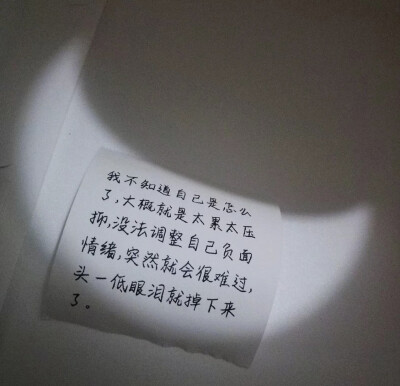 我不知道自己是怎么
了,大概就是太累太压
抑,没法调整自己负面
情绪,突然就会很难过,
头一低眼泪就掉下来
了。